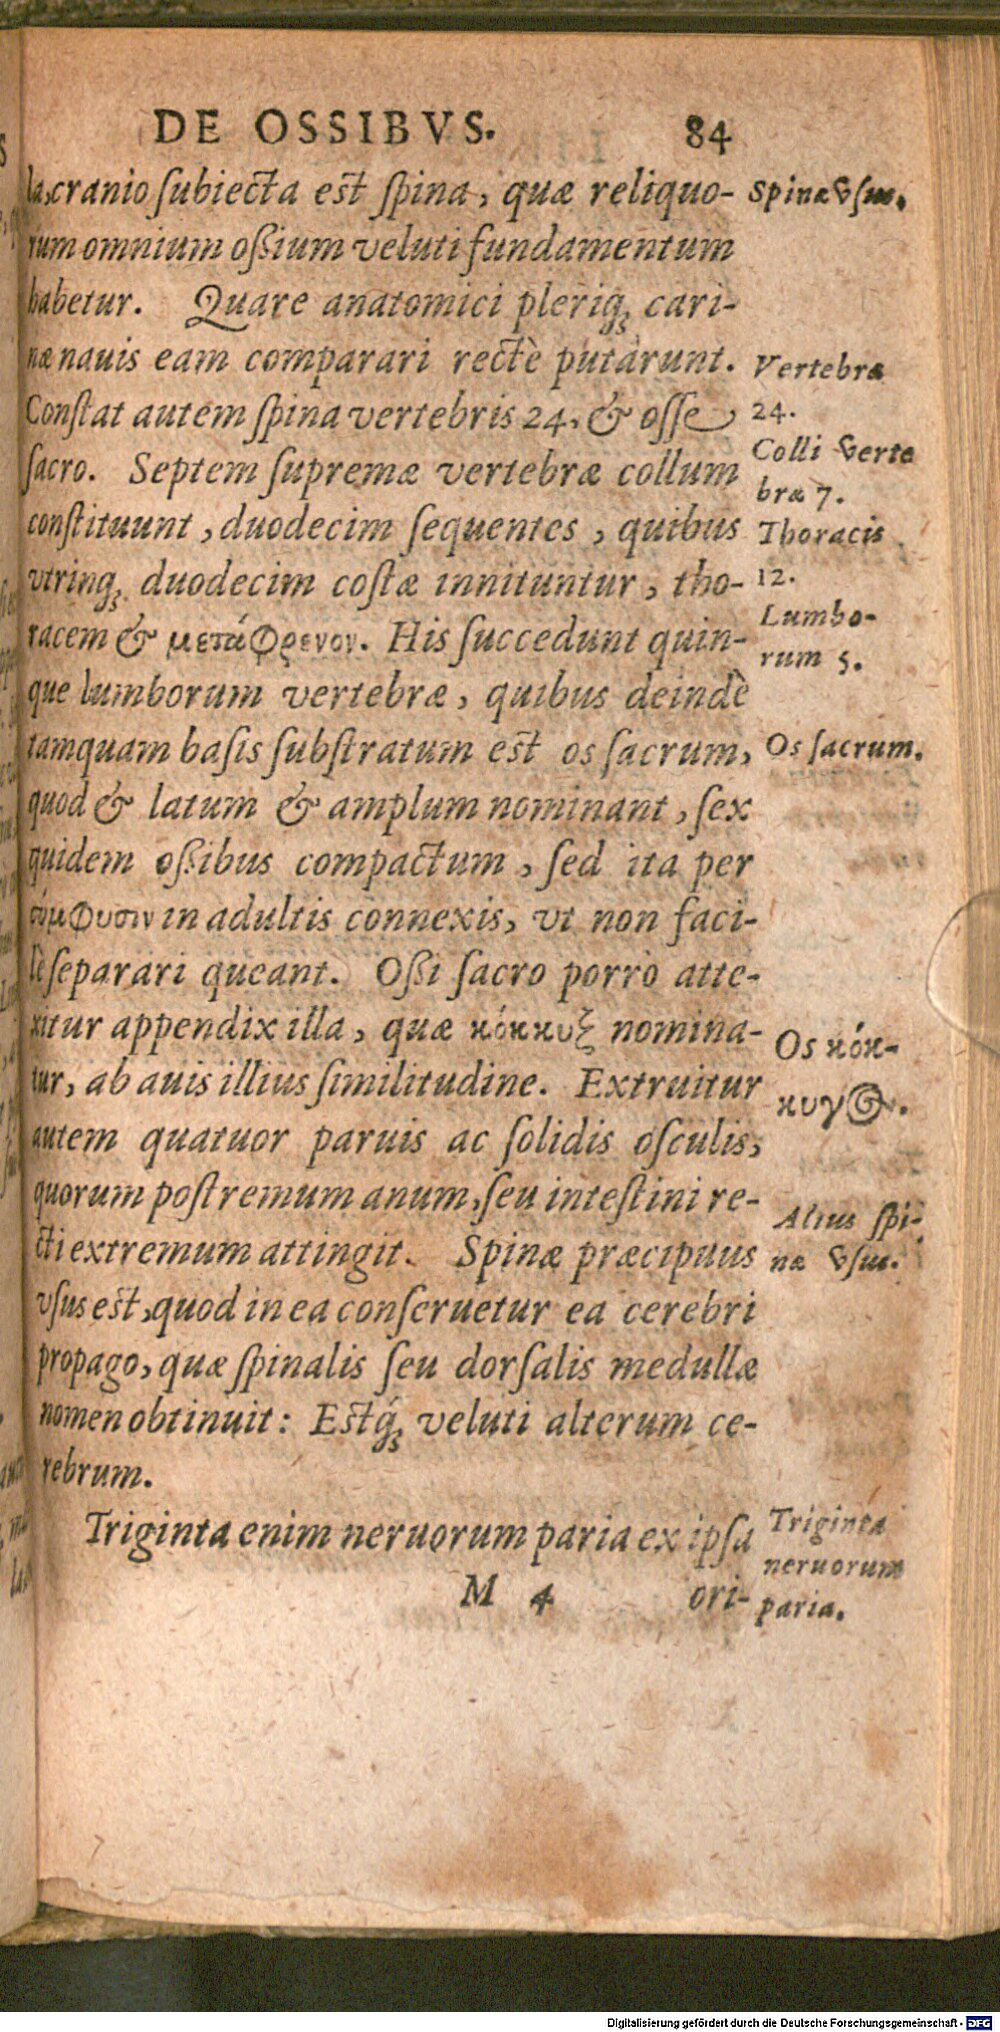 DE OSSIBVS. 84
la, cranio ſubiecta eſt ſpina, quæ reliquo-
rum omnium oßium veluti fundamentum
habetur. Quare anatomici pleriq́ꝫ cari-
næ nauis eam comparari rectè putârunt.
Conſtat autem ſpina vertebris 24. & oſſe
ſacro. Septem ſupremæ vertebræ collum
conſtituunt, duodecim ſequentes, quibus
vtrinqꝫ duodecim coſtæ innituntur, tho-
racem & μετάφρενον. His ſuccedunt quin-
que lumborum vertebræ, quibus deindè
tamquam baſis ſubſtratum eſt os ſacrum,
quod & latum & amplum nominant, ſex
quidem oßibus compactum, ſed ita per
σύμφυσιν in adultis connexis, vt non faci-
lè ſeparari queant. Oßi ſacro porrò atte-
xitur appendix illa, quæ κόκκυξ nomina-
tur, ab auis illius ſimilitudine. Extruitur
autem quatuor paruis ac ſolidis oſculis,
quorum poſtremum anum, ſeu inteſtini re-
cti extremum attingit. Spinæ præcipuus
vſus eſt, quod in ea conſeruetur ea cerebri
propago, quæ ſpinalis ſeu dorſalis medullæ
nomen obtinuit: Eſtq́ꝫ veluti alterum ce-
rebrum.
Triginta enim neruorum paria ex ipſa
M 4 ori-
Spinæ vſus.
Vertebræ
24.
Colli verte
bræ 7.
Thoracis
12.
Lumbo-
rum 5.
Os ſacrum.
Os κόκ-
κυγος.
Alius ſpi-
næ vſus.
Triginta
neruorum
paria.
Digitalisierung gefördert durch die Deutsche Forschungsgemeinschaft - DFG